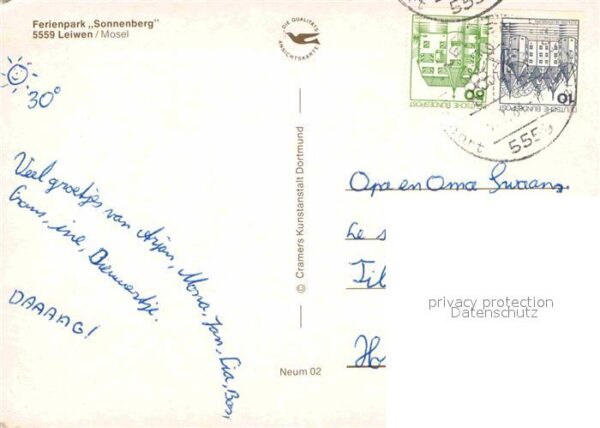 Ferienpark „Sonnenberg"
5559 Leiwen / Mosel
30°
Veel groetjes van Arjen, Mona, Jan, Lia, Bas,
ine,
DAAAAG!
DIE QUALITÄTS
ANSICHTSKARTE
© Cramers Kunstanstalt Dortmund
Neum 02
80
DEUTSCHE BUNDESPOST
10
DEUTSCHE BUNDESPOST
5559
Opa en Oma Swaans
Le s
Til
Ho
privacy protection
Datenschutz